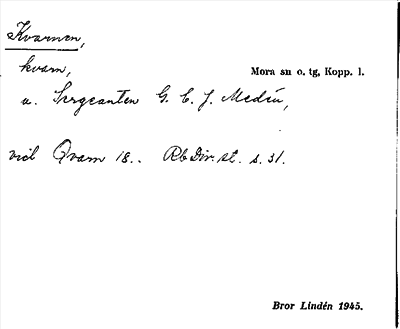 Kvarnen,
kvarn, Mora sn o. tg, Kopp. l.
u. Sergeanten G. C. J. Medin,
vid Qvarn 18.. Rb Div. st. s. 31.
Bror Lindén 1945.